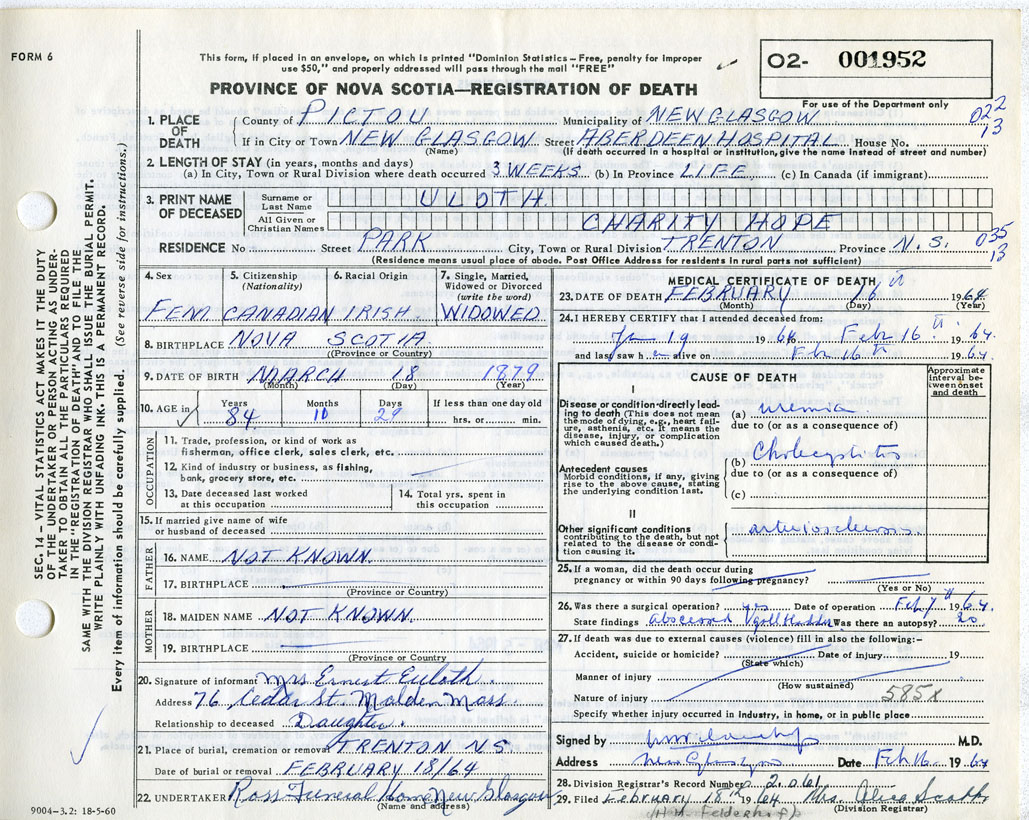 FORM 6
This form, if placed in an envelope, on which is printed "Dominion Statistics – Free, penalty for improper
use $50," and properly addressed will pass through the mail "FREE"
O2- 001952
PROVINCE OF NOVA SCOTIA—REGISTRATION OF DEATH
For use of the Department only
022
13
1. PLACE OF DEATH
County of PICTOU Municipality of NEW GLASGOW
If in City or Town NEW GLASGOW Street ABERDEEN HOSPITAL House No.
(Name) (If death occurred in a hospital or institution, give name instead of street and number)
2. LENGTH OF STAY (in years, months and days)
(a) In City, Town or Rural Division where death occurred 3 WEEKS (b) In Province LIFE (c) In Canada (if immigrant)
3. PRINT NAME OF DECEASED
Surname or Last Name ULOTH
All Given or Christian Names CHARITY HOPE
RESIDENCE No Street PARK City, Town or Rural Division TRENTON Province N.S.
035
13
(Residence means usual place of abode. Post Office Address for residents in rural parts not sufficient)
4. Sex FEM
5. Citizenship (Nationality) CANADIAN
6. Racial Origin IRISH
7. Single, Married, Widowed or Divorced (write the word) WIDOWED
8. BIRTHPLACE NOVA SCOTIA
((Province or Country)
9. DATE OF BIRTH MARCH 18 1879
(Month) (Day) (Year)
10. AGE in Years 84 Months 10 Days 29 If less than one day old
hrs. or min.
OCCUPATION
11. Trade, profession, or kind of work as
fisherman, office clerk, sales clerk, etc.
12. Kind of industry or business, as fishing,
bank, grocery store, etc.
13. Date deceased last worked
at this occupation
14. Total yrs. spent in
this occupation
15. If married give name of wife
or husband of deceased
FATHER
16. NAME NOT KNOWN.
17. BIRTHPLACE
(Province or Country)
MOTHER
18. MAIDEN NAME NOT KNOWN.
19. BIRTHPLACE
(Province or Country
20. Signature of informant Mrs Ernest Euloth.
Address 76 Cedar St. Malden Mass.
Relationship to deceased Daughter.
21. Place of burial, cremation or removal TRENTON N S
Date of burial or removal FEBRUARY 18/64
22. UNDERTAKER Ross Funeral Home New Glasgow
(Name and address)
MEDICAL CERTIFICATE OF DEATH
23. DATE OF DEATH FEBRUARY 16 1964
(Month) (Day) (Year)
24. I HEREBY CERTIFY that I attended deceased from:
Jan 19 1964 Feb 16th 1964
and last saw h er alive on Feb 16th 1964
CAUSE OF DEATH
Approximate interval between onset and death
I
Disease or condition directly leading to death (This does not mean
the mode of dying, e.g., heart failure, asthenia, etc. It means the
disease, injury, or complication
which caused death.)
(a) uremia
due to (or as a consequence of)
Antecedent causes
Morbid conditions, if any, giving
rise to the above cause, stating
the underlying condition last.
(b) Cholecystitis
due to (or as a consequence of)
(c)
II
Other significant conditions
contributing to the death, but not
related to the disease or condition causing it.
arteriosclerosis
25. If a woman, did the death occur during
pregnancy or within 90 days following pregnancy?
(Yes or No)
26. Was there a surgical operation? yes Date of operation Feb 7th 1964.
State findings abscessed gallbladder Was there an autopsy? no
27. If death was due to external causes (violence) fill in also the following:–
Accident, suicide or homicide? Date of injury 19
(State which)
Manner of injury
(How sustained)
Nature of injury 585x
Specify whether injury occurred in industry, in home, or in public place
Signed by M.D.
Address New Glasgow Date Feb 16 1964
28. Division Registrar's Record Number 2061
29. Filed February 18th 1964 Mrs. Alice Scott
(Division Registrar)
SEC. 14 – VITAL STATISTICS ACT MAKES IT THE DUTY
OF THE UNDERTAKER OR PERSON ACTING AS UNDER-
TAKER TO OBTAIN ALL THE PARTICULARS REQUIRED
IN THE "REGISTRATION OF DEATH" AND TO FILE THE
SAME WITH THE DIVISION REGISTRAR WHO SHALL ISSUE THE BURIAL PERMIT.
WRITE PLAINLY WITH UNFADING INK. THIS IS A PERMANENT RECORD.
Every item of information should be carefully supplied. (See reverse side for instructions.)
9004–3.2: 18-5-60